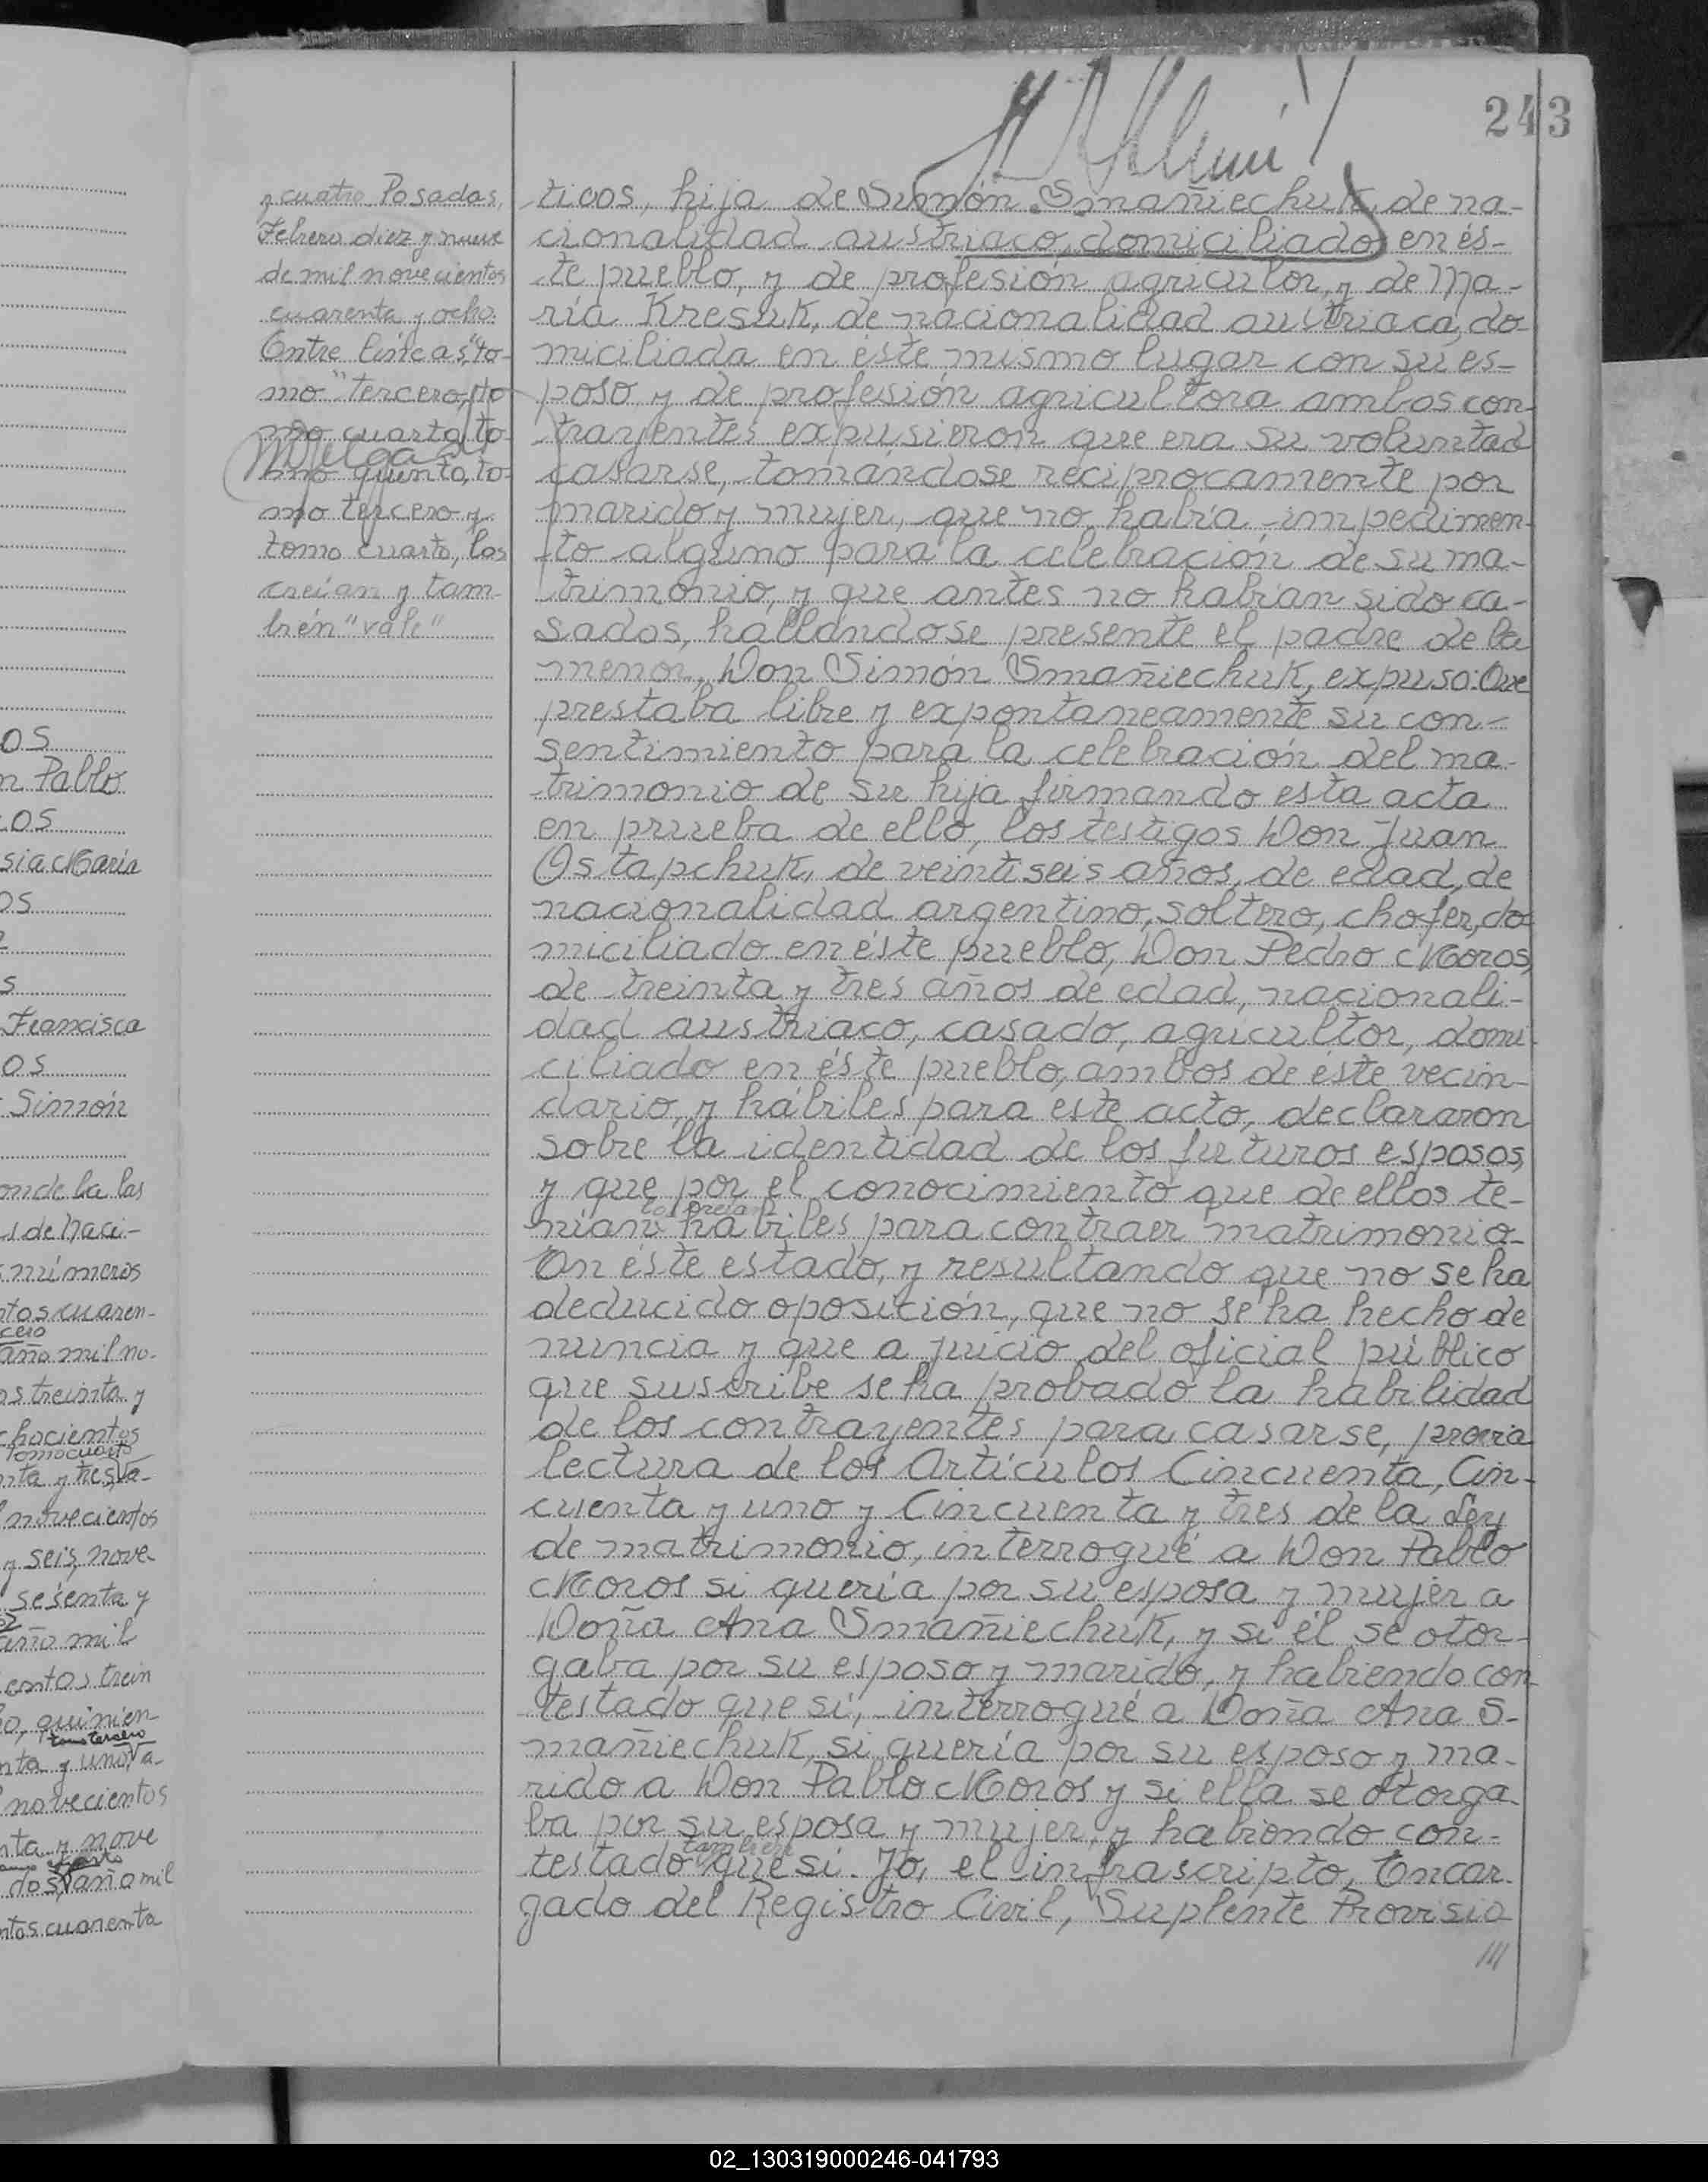 243
os
n Pablo
os
sia María
os
s
Francisca
os
Simón
onde la las
s de naci-
números
ntos cuaren-
cero
año mil no-
os treinta y
chocientos
tomo cuarto
nta y tres, Va-
novecientos
y seis, nove-
sesenta y
año mil
entos trein
o, quinien-
tomo tercero
nta y uno, Va-
novecientos
nta y nove
dos, año mil
ntos cuarenta
y cuatro Posadas,
Febrero diez y nueve
de mil novecientos
cuarenta y ocho.
Entre líneas, "to-
mo" tercero, to
mo cuarto, to-
mo quinto, to-
mo tercero y
tomo cuarto, los
creían y tam-
bién "vale"
ticos, hija de Simón Smañiechuk, de na-
cionalidad austriaco, domiciliado en és-
te pueblo, y de profesión agricultor, y de Ma-
ría Kresuk, de nacionalidad austriaca, do-
miciliada en éste mismo lugar con su es-
poso y de profesión agricultora ambos con-
trayentes expusieron que era su voluntad
casarse, tomándose recíprocamente por
marido y mujer, que no había impedimen-
to alguno para la celebración de su ma-
trimonio, y que antes no habían sido ca-
sados, hallándose presente el padre de la
menor, Don Simón Smañiechuk, expuso: Que
prestaba libre y expontaneamente su con-
sentimiento para la celebración del ma-
trimonio de su hija firmando esta acta
en prueba de ello, los testigos Don Juan
Ostapchuk, de veintiseis años, de edad, de
nacionalidad argentino, soltero, chofer, do-
miciliado en éste pueblo, Don Pedro Moros,
de treinta y tres años de edad, nacionali-
dad austriaco, casado, agricultor, domi-
ciliado en éste pueblo, ambos de éste vecin-
dario, y hábiles para este acto, declararon
sobre la identidad de los futuros esposos,
y que por el conocimiento que de ellos te-
los creían
nían hábiles para contraer matrimonio-
En éste estado, y resultando que no se ha
deducido oposición, que no se ha hecho de
nuncia y que a juicio del oficial público
que suscribe se ha probado la habilidad
de los contrayentes para casarse, previa
lectura de los Artículos Cincuenta, Cin-
cuenta y uno y Cincuenta y tres de la Ley
de matrimonio, interrogué a Don Pablo
Moros si quería por su esposa y mujer a
Doña Ana Smañiechuk, y si él se otor-
gaba por su esposo y marido, y habiendo con-
testado que sí, interrogué a Doña Ana S-
mañiechuk, si quería por su esposo y ma-
rido a Don Pablo Moros y si ella se otorga-
ba por su esposa y mujer, y habiendo con-
también
testado que sí. Yo, el infrascripto, Encar-
gado del Registro Civil, Suplente Provisio-
///
02_130319000246-041793